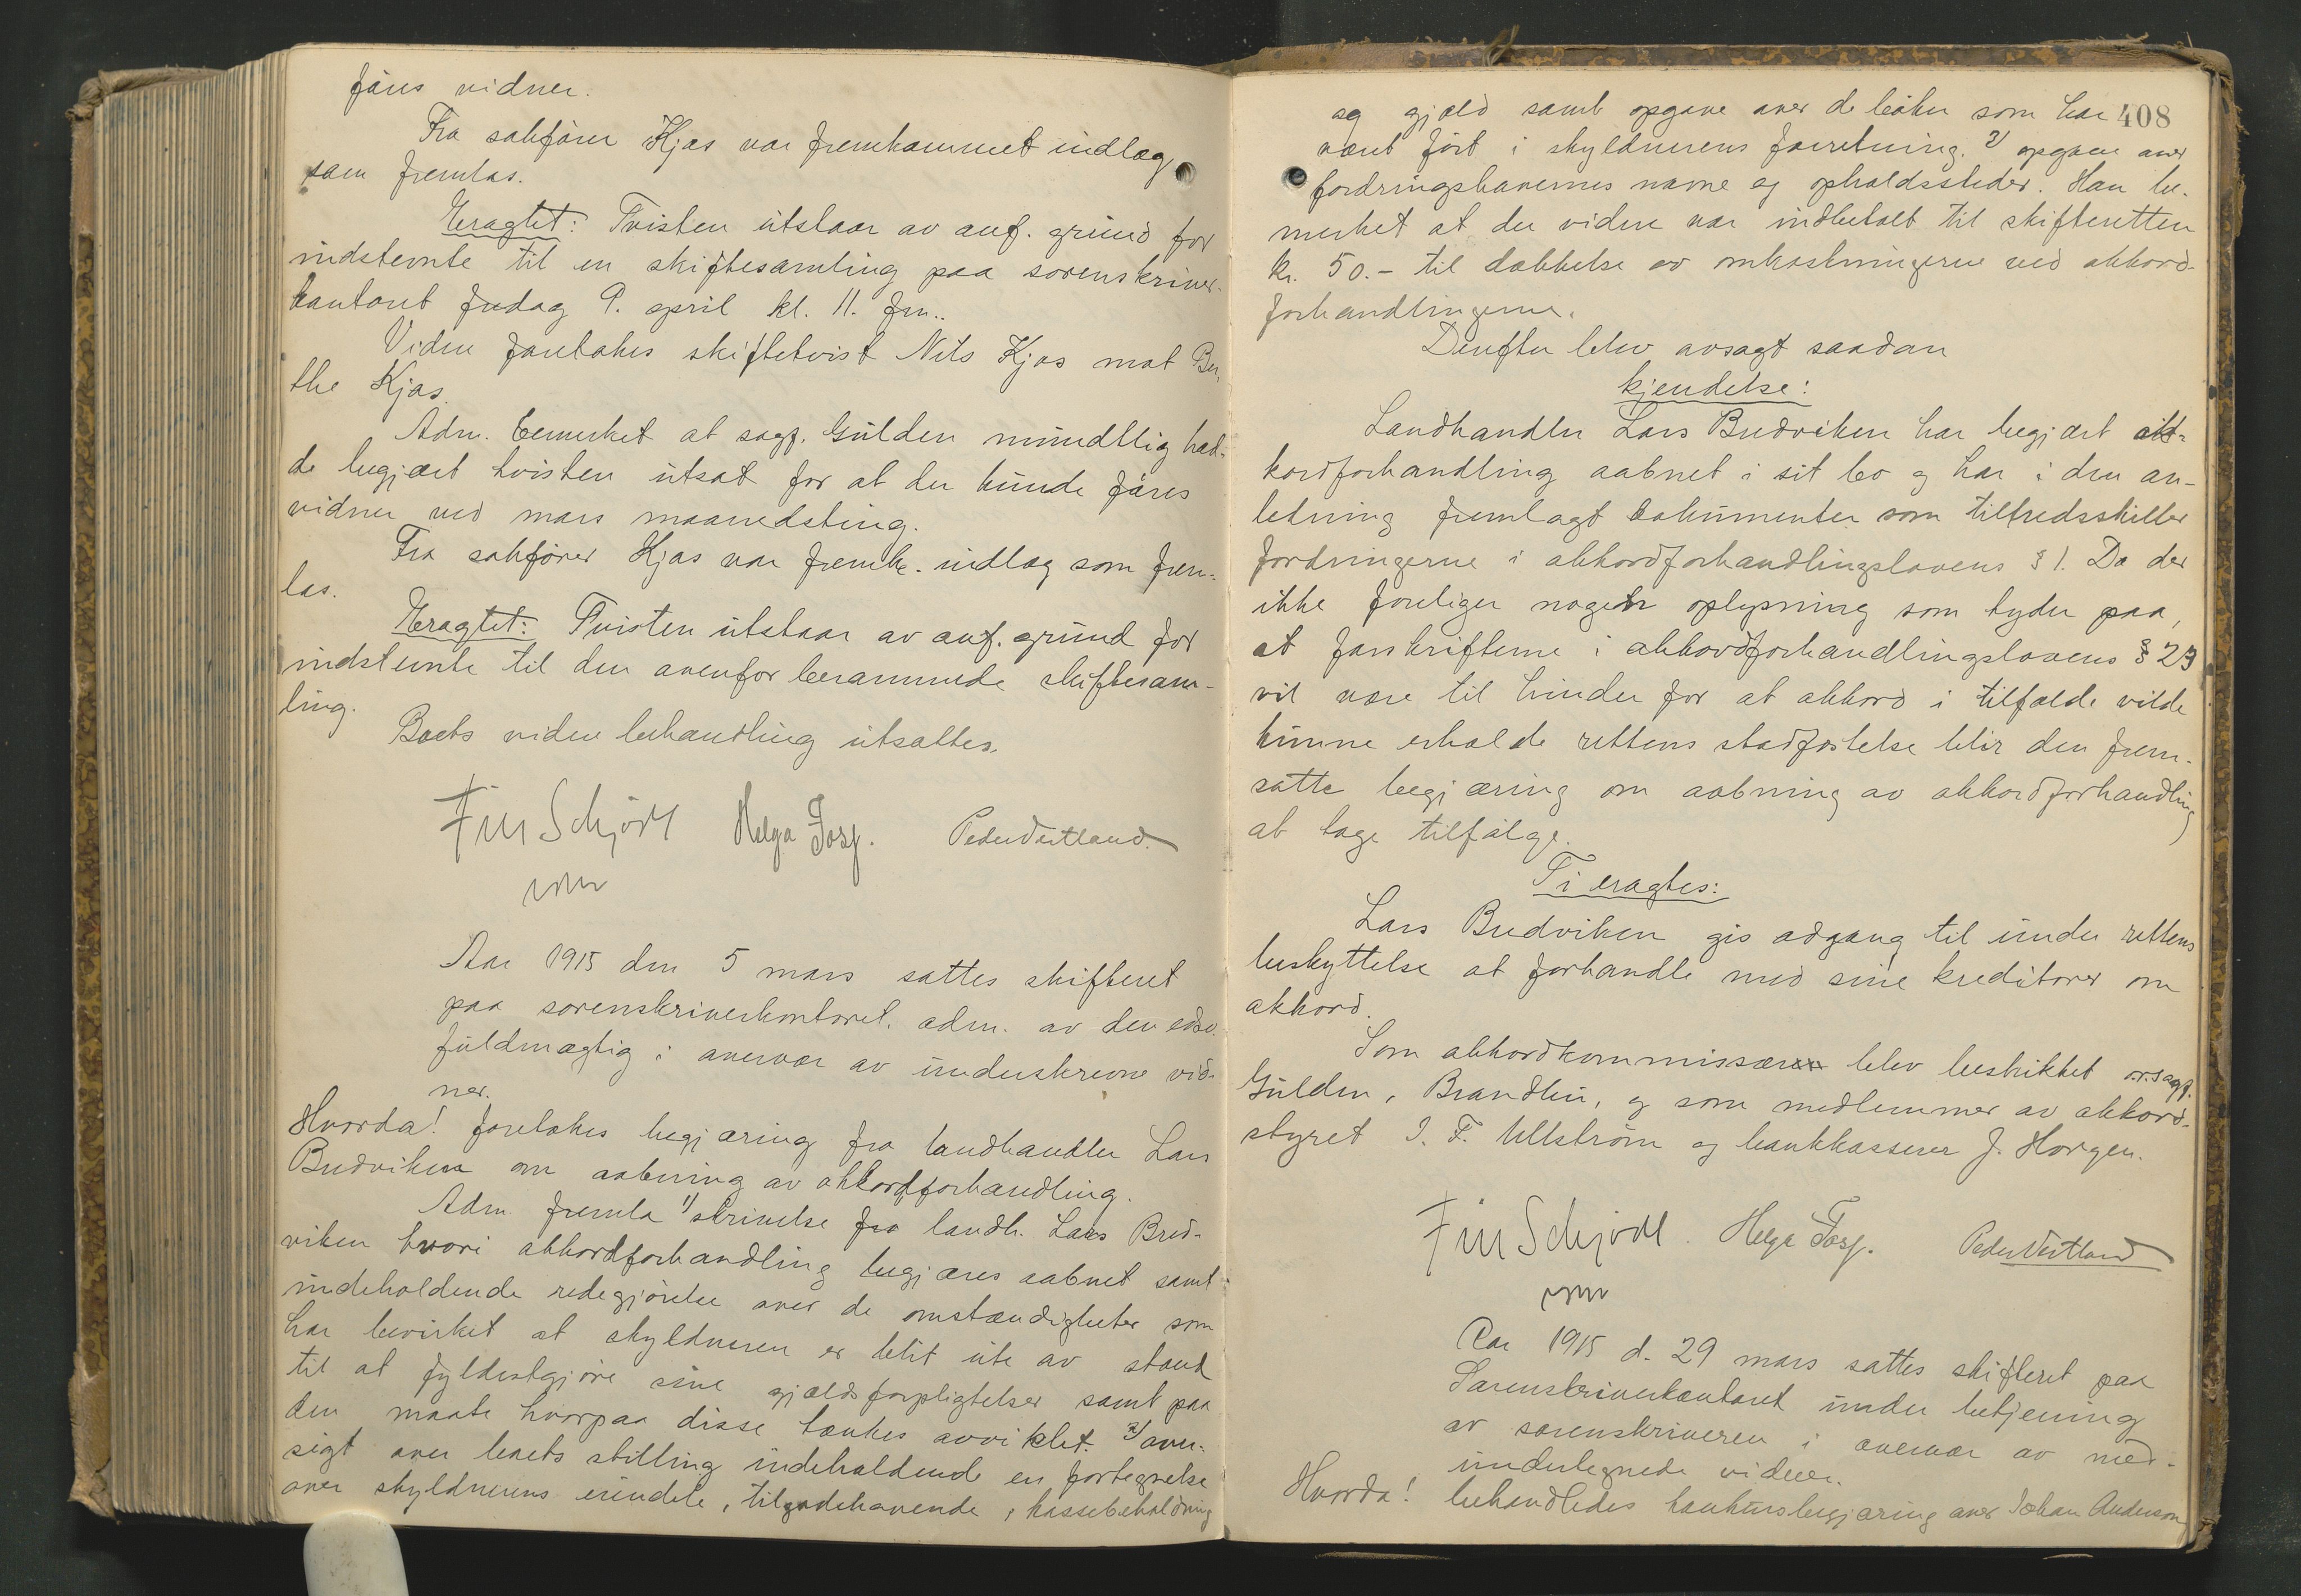 føres vidner.
Fra sakfører Kjos var fremkommet indlæg
som fremlas.
Eragtet: Tvisten utstaar av anf. grund for
indstevnte til en skiftesamling paa sorenskriver-
kontoret fredag 9. april kl. 11. fm..
Videre foretokes skiftetvist Nils Kjos mot Ber-
the Kjos.
Adm. bemerket at sagf. Gulden mundtlig had-
de begjært tvisten utsat for at der kunde føres
vidner ved mars maanedsting.
Fra sakfører Kjos var fremk. indlæg som frem-
las.
Eragtet: Tvisten utstaar av anf. grund for
indstevnte til den ovenfor berammede skiftesam-
ling.
Boets videre behandling utsattes.
Fin Schjødt Helga Fosf. Peder Vestland.
Aar 1915 den 5 mars sattes skifteret
paa sorenskriverkontoret. adm. av den edsv.
fuldmægtig i overvær av underskrevne vid-
ner.
Hvorda! foretokes begjæring fra landhandler Lars
Budviken om aabning av akkordforhandling.
Adm. fremla 1/ skrivelse fra landh. Lars Bud-
viken hvori akkordforhandling begjæres aabnet samt
indeholdende redegjørelse over de omstændigheter som
har bevirket at skyldneren er blit ute av stand
til at fyldestgjøre sine gjældsforpligtelser samt paa
den maate hvorpaa disse tænkes avviklet. 2/ over-
sigt over boets stilling indeholdende en fortegnelse
over skyldnerens eiendele, tilgodehavende, kassebeholdning
408
og gjæld samt opgave over de bøker som har
været ført i skyldnerens forretning. 3/ opgave over
fordringshavernes navne og opholdssteder. Han be-
merket at der videre var indbetalt til skifteretten
kr. 50.- til dækkelse av omkostningerne ved akkord-
forhandlingerne.
Derefter blev avsagt saadan
kjendelse:
Landhandler Lars Budviken har begjært ak-
kordforhandling aabnet i sit bo og har i den an-
ledning fremlagt dokumenter som tilfredsstiller
fordringerne i akkordforhandlingslovens § 1. Da der
ikke foreligger nogen oplysning som tyder paa,
at forskrifterne i akkordforhandlingslovens § 29
vil være til hinder for at akkord i tilfælde vilde
kunne erholde rettens stadfæstelse blir den frem-
satte begjæring om aabning av akkordforhandling
at tage tilfølge.
Ti eragtes:
Lars Budviken gis adgang til under rettens
beskyttelse at forhandle med sine kreditorer om
akkord.
Som akkordkommissær blev beskikket o.r.sagf.
Gulden, Brandbu, og som medlemmer av akkord-
styret I. F. Ullstrøm og bankkasserer J. Horgen.
Fin Schjødt. Helga Fosf. Peder Vestland
Aar 1915 d. 29 mars sattes skifteret paa
Sorenskriverkontoret under betjening
av sorenskriveren i overvær av med-
undertegnede vidner.
Hvorda! behandledes konkursbegjæring over Johan Anderson,